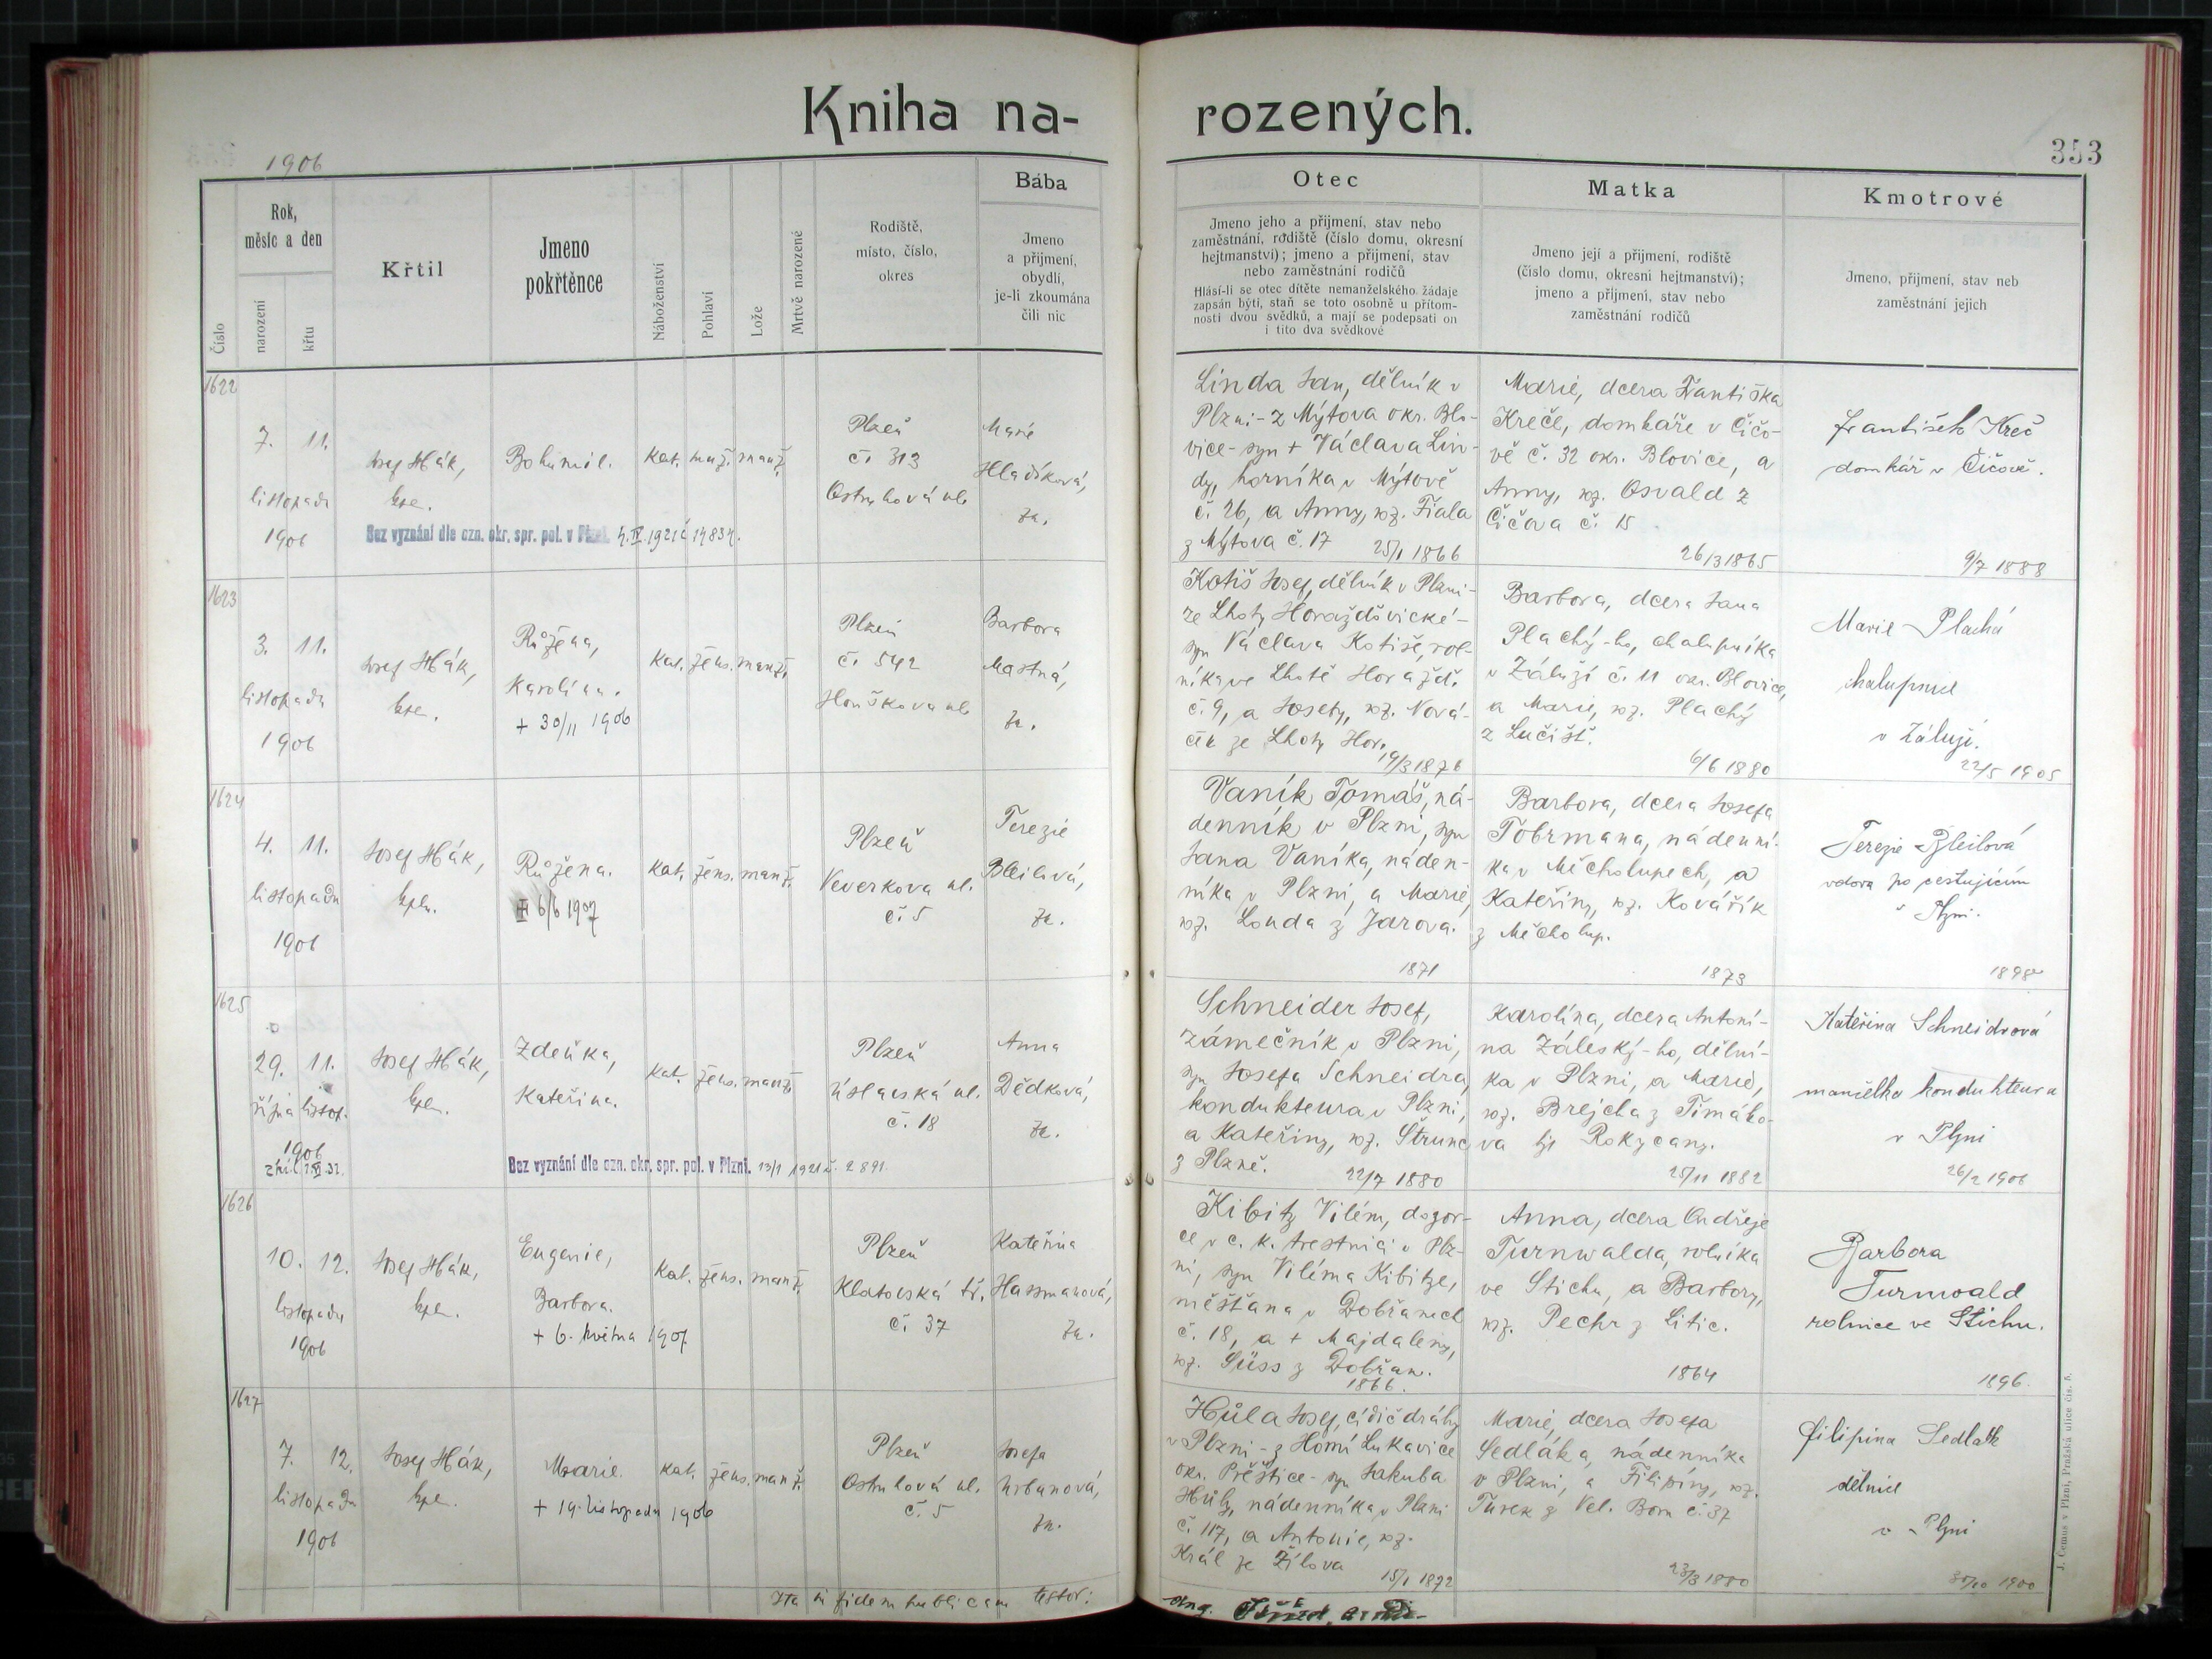 Kniha na-
rozených.
353
1906
Číslo
Rok,
měsíc a den
narození
křtu
Křtil
Jmeno
pokřtěnce
Náboženství
Pohlaví
Lože
Mrtvě narozené
Rodiště,
místo, číslo,
okres
Bába
Jmeno
a přijmení,
obydlí,
je-li zkoumána
čili nic
Otec
Jmeno jeho a přijmení, stav nebo
zaměstnání, rodiště (číslo domu, okresní
hejtmanství); jmeno a přijmení, stav
nebo zaměstnání rodičů
Hlásí-li se otec dítěte nemanželského žádaje
zapsán býti, staň se toto osobně u přítom-
nosti dvou svědků, a mají se podepsati on
i tito dva svědkové
Matka
Jmeno její a přijmení, rodiště
(číslo domu, okresní hejtmanství);
jmeno a přijmení, stav nebo
zaměstnání rodičů
Kmotrové
Jmeno, přijmení, stav neb
zaměstnání jejich
1622
7. 11.
listopadu
1906
Josef Hák,
kpl.
Bohumil.
kat. muž. manž.
Bez vyznání dle ozn. okr. spr. pol. v Plzni.
Plzeň
č. 313
Ostruhová ul.
Marie
Hladíková,
zk.
Linda Jan, dělník v
Plzni - z Mýtova okr. Blo-
vice - syn + Václava Lin-
dy, horníka v Mýtově
č. 26, a Anny, roz. Fiala
z Mýtova č. 17
25/1 1866
Marie, dcera Františka
Kreče, domkáře v Čičo-
vě č. 32 okr. Blovice, a
Anny, roz. Osvald z
Čičova č. 15
26/3 1865
František Kreč
domkář v Čičově.
9/7 1888
1623
3. 11.
listopadu
1906
Josef Hák,
kpl.
Růžena,
Karolina.
+ 30/11 1906
kat. žens. manž.
Plzeň
č. 542
Houškova ul.
Barbora
Mastná,
zk.
Kotiš Josef, dělník v Plzni -
ze Lhoty Horažďovické -
syn Václava Kotiše, rol-
níka ve Lhotě Horažď.
č. 9, a Josefy, roz. Nová-
ček ze Lhoty Hor.
19/3 1876
Barbora, dcera Jana
Plachý-ho, chalupníka
v Záluží č. 11 okr. Blovice,
a Marie, roz. Plachý
z Lučišť.
6/6 1880
Marie Plachá
chalupnice
v Záluží.
22/5 1905
1624
4. 11.
listopadu
1906
Josef Hák,
kpln.
Růžena.
6/6 1907
kat. žens. manž.
Plzeň
Veverkova ul.
č. 5
Terezie
Bleilová,
zk.
Vaník Tomáš, ná-
denník v Plzni, syn
Jana Vaníka, náden-
níka v Plzni, a Marie,
roz. Louda z Jarova.
1871
Barbora, dcera Josefa
Tobrmana, nádenní-
ka v Měcholupech, a
Kateřiny, roz. Kovářík
z Měcholup.
1873
Terezie Bleilová
vdova po cestujícím
v Plzni.
1898
1625
29. 11.
října listop.
1906
Josef Hák,
kpln.
Zdeňka,
Kateřina.
kat. žens. manž.
Bez vyznání dle ozn. okr. spr. pol. v Plzni. 13/1 1921 č. 2891.
Plzeň
Úslavská ul.
č. 18
Anna
Dědková,
zk.
Schneider Josef,
zámečník v Plzni,
syn Josefa Schneidra,
kondukteura v Plzni,
a Kateřiny, roz. Štrunc
z Plzně.
22/7 1880
Karolína, dcera Antoní-
na Záleský-ho, dělní-
ka v Plzni, a Marie,
roz. Brejcha z Timáko-
va hj. Rokycany.
25/11 1882
Kateřina Schneidrová
manželka kondukteura
v Plzni
26/2 1906
1626
10. 12.
listopadu
1906
Josef Hák,
kpln.
Eugenie,
Barbora.
+ 6. května 1907
kat. žens. manž.
Plzeň
Klatovská tř.
č. 37
Kateřina
Hassmanová,
zk.
Kibitz Vilém, dozor-
ce v c. k. trestnici v Plz-
ni, syn Viléma Kibitze,
měšťana v Dobřanech
č. 18, a + Majdaleny,
roz. Süss z Dobřan.
1866.
Anna, dcera Ondřeje
Turnwalda, rolníka
ve Štichu, a Barbory,
roz. Pechr z Litic.
1864
Barbora
Turnwald
rolnice ve Štichu.
1896.
1627
7. 12.
listopadu
1906
Josef Hák,
kpl.
Marie.
+ 19. listopadu 1906
kat. žens. manž.
Plzeň
Ostruhová ul.
č. 5
Josefa
Urbanová,
zk.
Hůla Josef, cídič dráhy
v Plzni - z Horní Lukavice
okr. Přeštice - syn Jakuba
Hůly, nádenníka v Plzni
č. 117, a Antonie, roz.
Král ze Žilova
15/1 1872
Marie, dcera Josefa
Sedláka, nádenníka
v Plzni, a Filipíny, roz.
Turek z Vel. Boru č. 37
23/3 1880
Filipina Sedlák
dělnice
v Plzni
30/10 1900
Ita in fidem publicam testor:
J. Čemus v Plzni, Pražská ulice čís. 5.